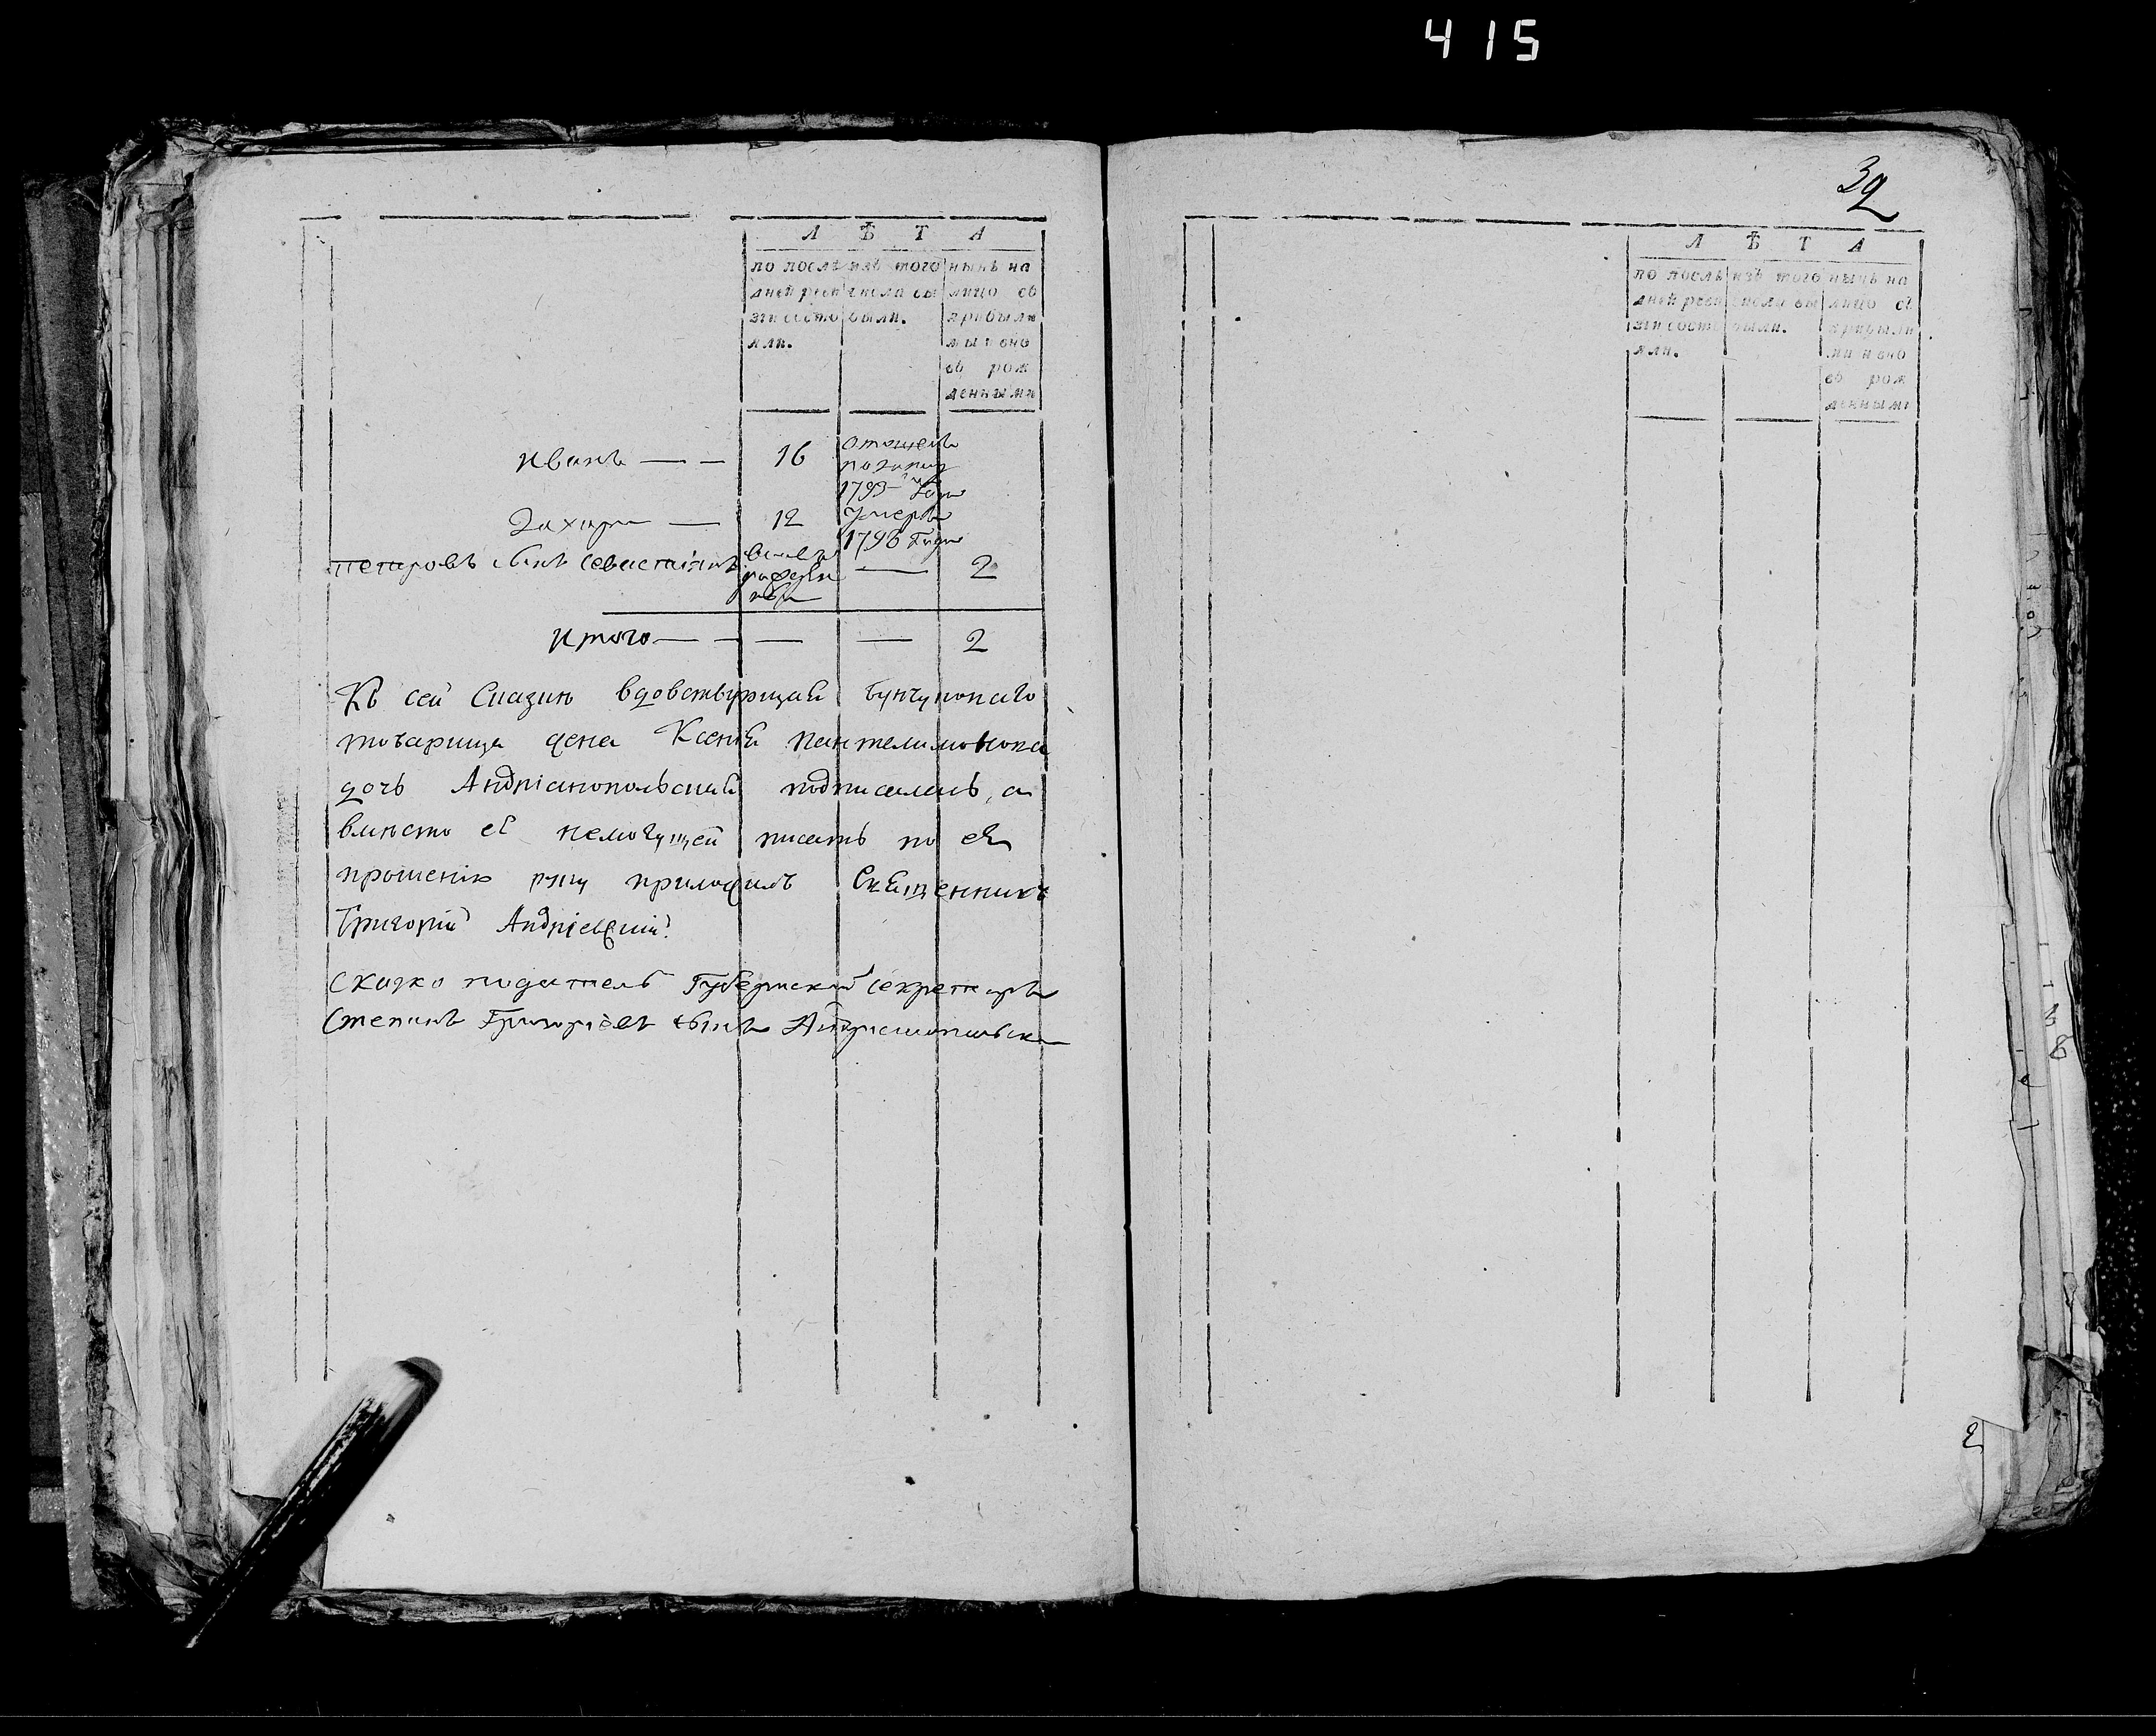 415
Л Ѣ Т А
по послѣ дней реви зіи состо яли.
изъ того числа вы были.
нынѣ на лицо съ прибылы ми и вно въ рож денными
Иванъ — — 16
1793 году
Захаръ — 12 умеръ
1796 году
Петровъ сынъ Севастіянъ — 2
Итого — — — — 2
Къ сей Сказки вдовствующая бунчуковаго
товарища жена Ксенія Пантелимонова
дочь Андріанопольская подписалась, а
вмѣсто её немогущей писать по ея
прошенію руку приложилъ Священникъ
Григорій Андріевскій.
Сказко податель Губернский секретарь
Степанъ Григоріевъ сынъ
32
Л Ѣ Т А
по послѣ дней реви зіи состо яли.
изъ того числа вы были.
нынѣ на лицо съ прибыли ми и вно въ рож денными